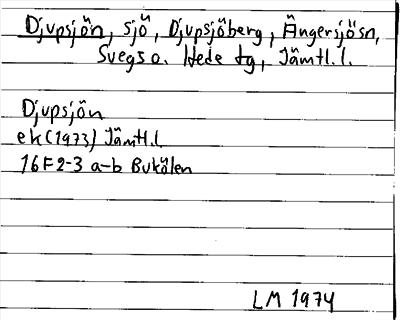 Djupsjön, sjö, Djupsjöberg, Ängersjösn,
Svegs o. Hede tg, Jämtl.l.
Djupsjön
ek (1973) Jämtl.l.
16F 2-3 a-b Bukölen
LM 1974